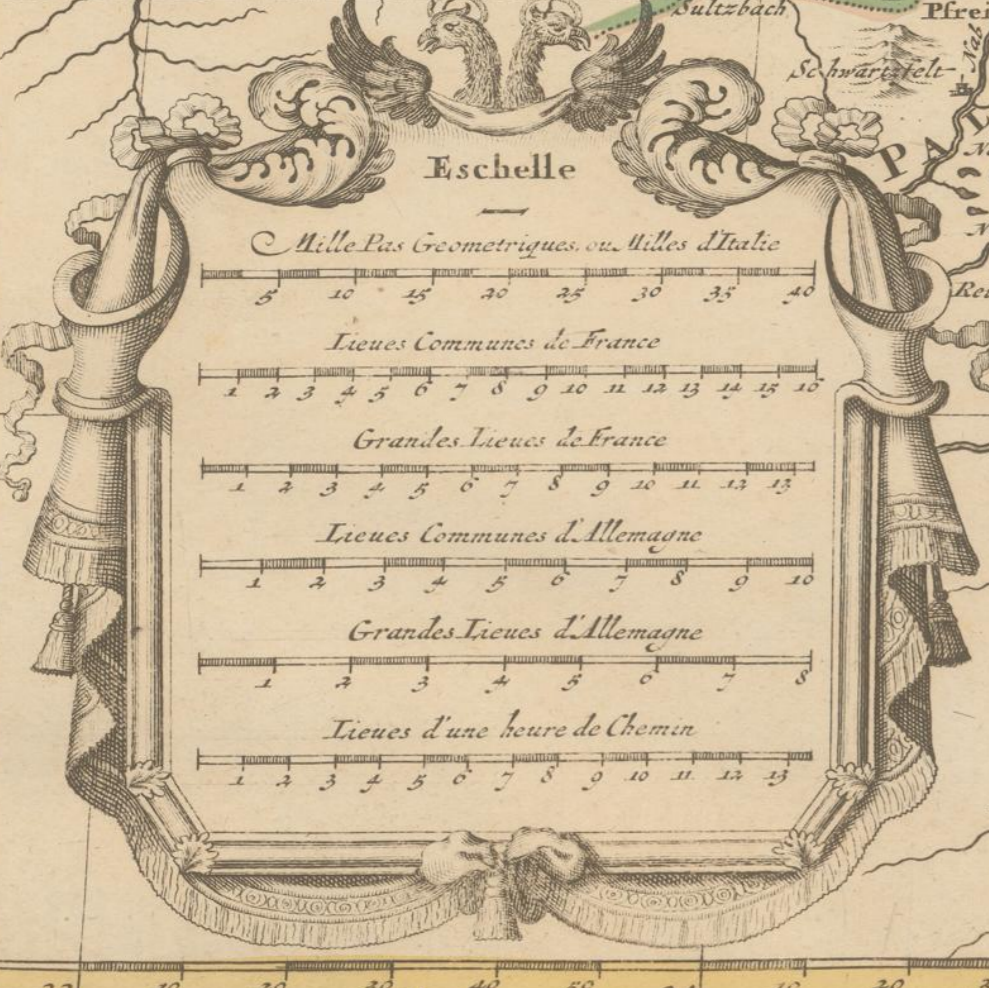 Sultzbach
Schwartzfelt
Eschelle
Mille Pas Geometriques, ou Milles d'Italie
5 10 15 20 25 30 35 40
Lieues Communes de France
1 2 3 4 5 6 7 8 9 10 11 12 13 14 15 16
Grandes Lieues de France
1 2 3 4 5 6 7 8 9 10 11 12 13
Lieues Communes d'Allemagne
1 2 3 4 5 6 7 8 9 10
Grandes Lieues d'Allemagne
1 2 3 4 5 6 7 8
Lieues d'une heure de Chemin
1 2 3 4 5 6 7 8 9 10 11 12 13